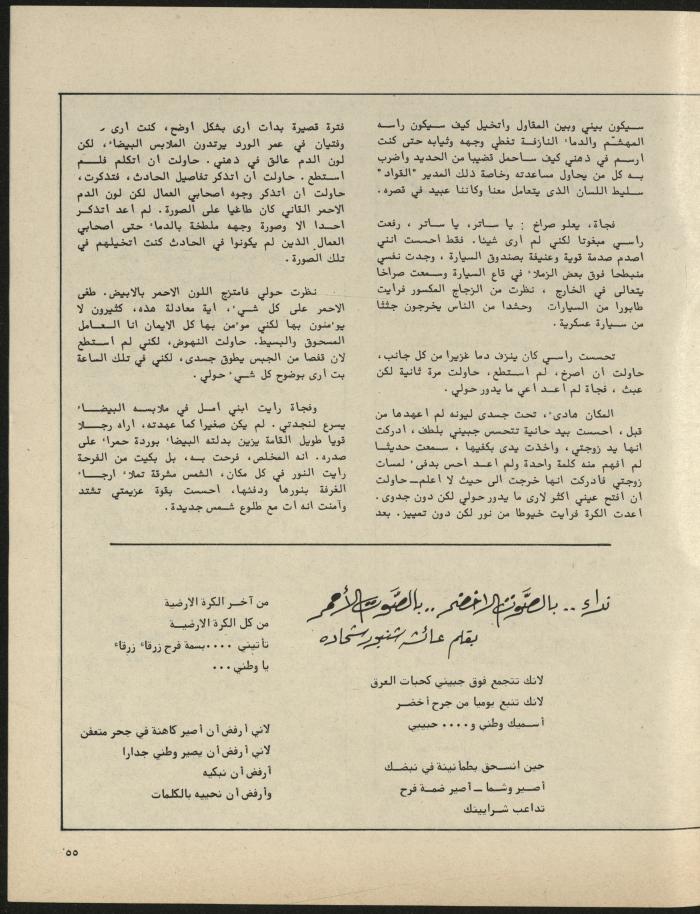 سيكون بيني وبين المقاول وأتخيل كيف سيكون راسه
المهشّم والدماء النازفة تغطي وجهه وثيابه حتى كنت
ارسم في ذهني كيف ساحمل قضيبا من الحديد واضرب
به كل من يحاول مساعدته وخاصة ذلك المدير "القواد"
سليط اللسان الذى يتعامل معنا وكأننا عبيد في قصره .
فجأة، يعلو صراخ : يا ساتر، يا ساتر ، رفعت
راسي مبغوتا لكني لم ارى شيئا. فقط احسست انني
اصدم صدمة قوية وعنيفة بصندوق السيارة ، وجدت نفسي
منبطحا فوق بعض الزملاء في قاع السيارة وسمعت صراخا
يتعالى في الخارج ، نظرت من الزجاج المكسور فرايت
طابورا من السيارات وحشدا من الناس يخرجون جثثا
من سيارة عسكرية .
تحسست راسي كان ينزف دما غزيرا من كل جانب،
حاولت ان اصرخ، لم استطع، حاولت مرة ثانية لكن
عبث ، فجأة لم أعد اعي ما يدور حولي .
المكان هادىء، تحت جسدى ليونه لم اعهدها من
قبل ، احسست بيد حانية تتحسس جبيني بلطف، ادركت
انها يد زوجتي، واخذت يدى بكفيها ، سمعت حديثا
لم افهم منه كلمة واحدة ولم اعد احس بدفء لمسات
زوجتي فأدركت انها خرجت الى حيث لا اعلم ــ حاولت
ان افتح عيني اكثر لارى ما يدور حولي لكن دون جدوى .
اعدت الكرة فرايت خيوطا من نور لكن دون تمييز . بعد
فترة قصيرة بدات ارى بشكل اوضح، كنت ارى
وفتيان في عمر الورد يرتدون الملابس البيضاء، لكن
لون الدم عالق في ذهني. حاولت ان اتكلم فلم
استطع . حاولت ان اتذكر تفاصيل الحادث ، فتذكرت،
حاولت ان اتذكر وجوه اصحابي العمال لكن لون الدم
الاحمر القاني كان طاغيا على الصورة . لم اعد اتذكر
احدا الا وصورة وجهه ملطخة بالدماء حتى اصحابي
العمال الذين لم يكونوا في الحادث كنت اتخيلهم في
تلك الصورة .
نظرت حولي فامتزج اللون الاحمر بالابيض. طغى
الاحمر على كل شيء، اية معادلة هذه، كثيرون لا
يوءمنون بها لكني موءمن بها كل الايمان انا العامل
المسحوق والبسيط. حاولت النهوض، لكني لم استطع
لان قفصا من الجبس يطوق جسدى، لكني في تلك الساعة
بت ارى بوضوح كل شيء حولي .
وفجأة رايت ابني أمل في ملابسه البيضاء
يسرع لنجدتي . لم يكن صغيرا كما عهدته، اراه رجلا
قويا طويل القامة يزين بدلته البيضاء بوردة حمراء على
صدره . انه المخلص، فرحت به، بل بكيت من الفرحة
رايت النور في كل مكان، الشمس مشرقة تملاء ارجاء
الغرفة بنورها ودفئها، احسست بقوة عزيمتي تشتد
وآمنت انه ات مع طلوع شمس جديدة .
نداء .. بالصّوت الاخضر .. بالصّوت الأحمر
بقلم عائشه شنبور شحاده
لانك تتجمع فوق جبيني كحبات العرق
لانك تنبع يوميا من جرح أخضر
أسميك وطني و .... حبيبي
حين انسحق بطمأنينة في نبضك
أصير وشما ــ أصير ضمة فرح
تداعب شرايينك
من آخر الكرة الارضية
من كل الكرة الارضية
تأتيني .... بسمة فرح زرقاء زرقاء
يا وطني ...
لاني أرفض أن أصير كاهنة في جحر متعفن
لاني أرفض أن يصير وطني جدارا
أرفض أن نبكيه
وأرفض أن نحييه بالكلمات
٥٥